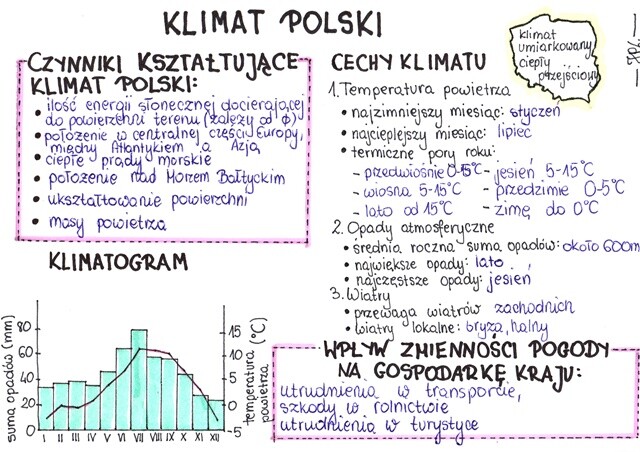 KLIMAT POLSKI
klimat
umiarkowany
ciepły
przejściowy
CZYNNIKI KSZTAŁTUJĄCE
KLIMAT POLSKI:
• ilość energii słonecznej docierającej
do powierzchni terenu (zależy od φ)
• położenie w centralnej części Europy,
między Atlantykiem a Azją
• ciepłe prądy morskie
• położenie nad Morzem Bałtyckim
• ukształtowanie powierzchni
• masy powietrza
CECHY KLIMATU
1. Temperatura powietrza
• najzimniejszy miesiąc: styczeń
• najcieplejszy miesiąc: lipiec
• termiczne pory roku:
- przedwiośnie 0-5°C - jesień 5-15°C
- wiosna 5-15°C - przedzimie 0-5°C
- lato od 15°C - zimę do 0°C
2. Opady atmosferyczne
• średnia roczna suma opadów: około 600m
• największe opady: lato
• najczęstsze opady: jesień
3. Wiatry
• przewaga wiatrów zachodnich
• wiatry lokalne: bryza, halny
KLIMATOGRAM
suma opadów (mm)
80
60
40
20
15
10
5
0
-5
temperatura (°C)
powietrza
I II III IV V VI VII VIII IX X XI XII
WPŁYW ZMIENNOŚCI POGODY
NA GOSPODARKĘ KRAJU:
utrudnienia w transporcie,
szkody w rolnictwie
utrudnienia w turystyce